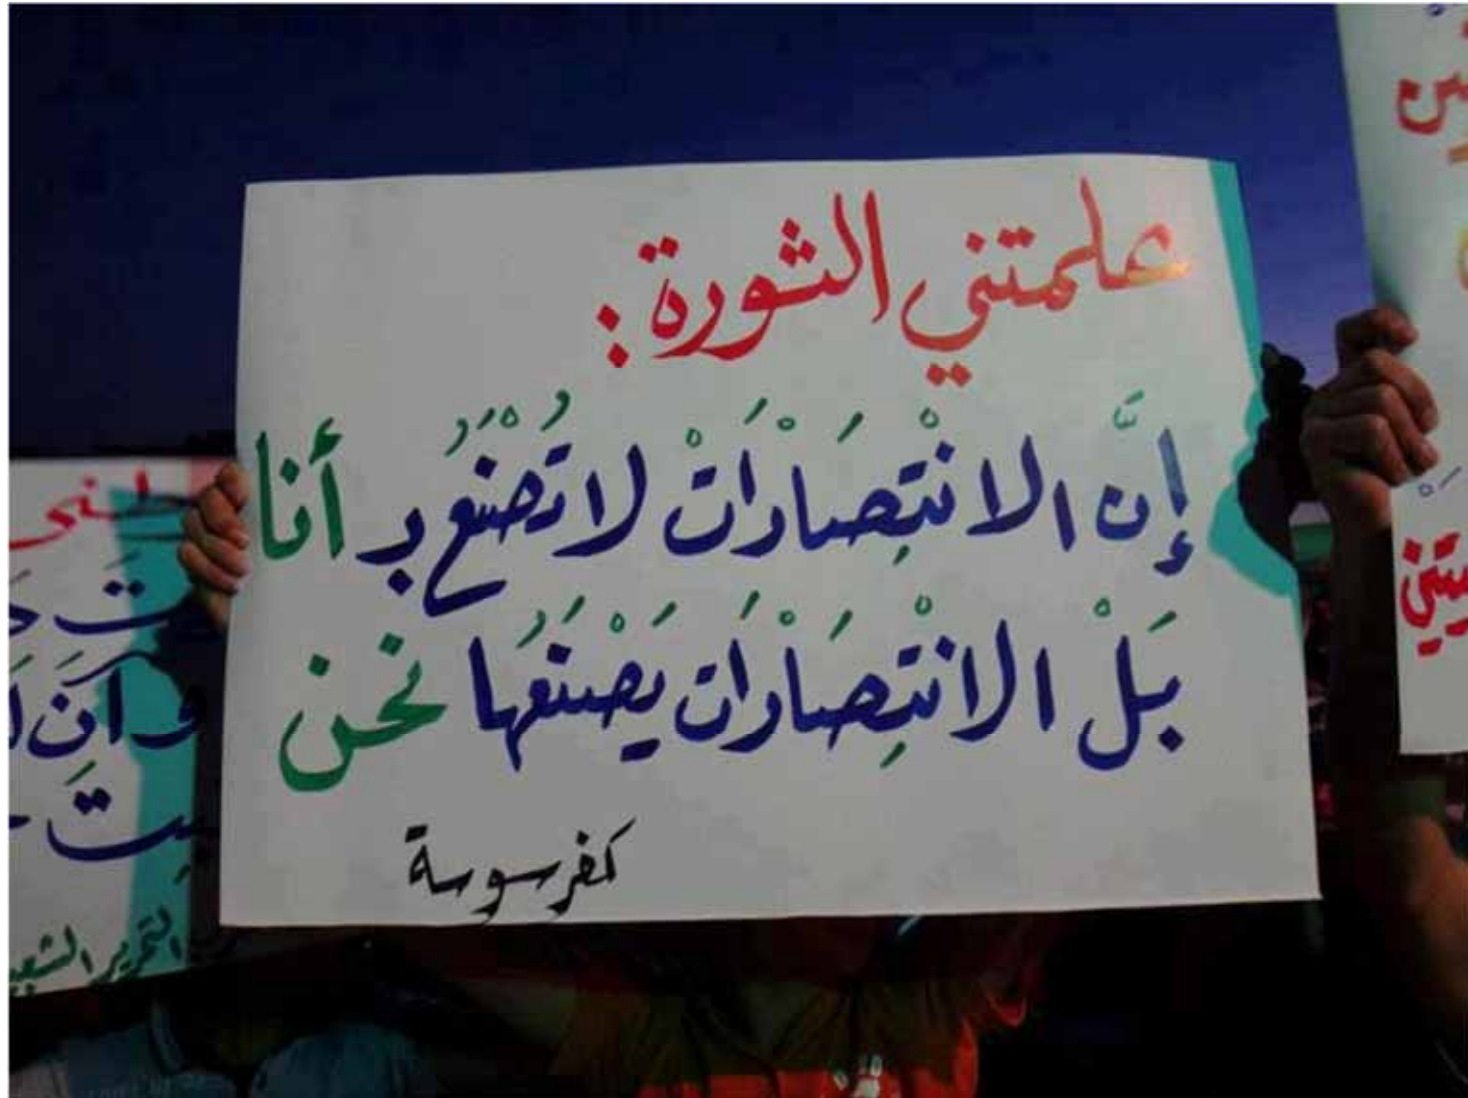 علمتني الثورة :
إنَّ الانْتِصَارَاتْ لا تُصْنَعُ بـ أنا
بَلْ الانْتِصَارَات يَصْنَعُهَا نحن
كفرسوسة
التحرير الشعبية